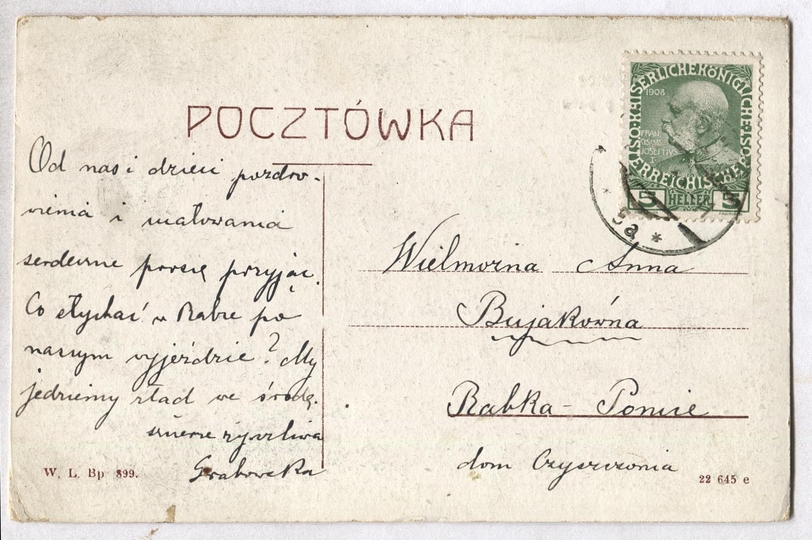 POCZTÓWKA
Od nas i dzieci pozdro-
wienia i ucałowania
serdeczne proszę przyjąć.
Co słychać w Rabce po
naszym wyjeździe? My
jedziemy stąd we środę.
szczerze życzliwa
Grabowska
W. L. Bp 899.
1908
KAISERLICHE KÖNIGLICHE
ÖSTERREICHISCHE POST
FRANZ JOSEF I
5 HELLER 5
5a *
Wielmożna Anna
Bujakówna
Rabka - Ponice
dom Czyszczonia
22 645 e